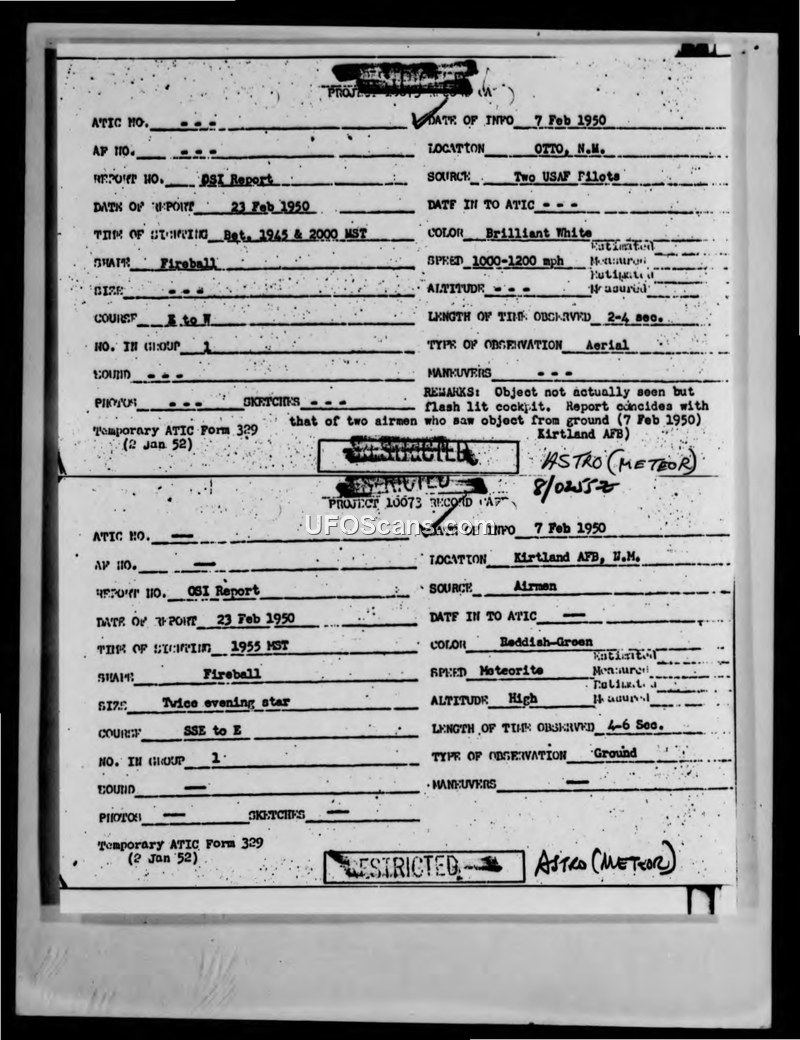 PROJECT 10073 RECORD CARD
ATIC NO. - - -
DATE OF INFO 7 Feb 1950
AF NO. - - -
LOCATION OTTO, N.M.
REPORT NO. OSI Report
SOURCE Two USAF Pilots
DATE OF REPORT 23 Feb 1950
DATE IN TO ATIC - - -
TIME OF SIGHTING Bet. 1945 & 2000 MST
COLOR Brilliant White
SHAPE Fireball
SPEED 1000-1200 mph
Estimated
Measured
SIZE - - -
ALTITUDE - - -
Estimated
Measured
COURSE E to W
LENGTH OF TIME OBSERVED 2-4 sec.
NO. IN GROUP 1
TYPE OF OBSERVATION Aerial
SOUND - - -
MANEUVERS - - -
PHOTOS - - - SKETCHES - - -
REMARKS: Object not actually seen but
flash lit cockpit. Report concides with
that of two airmen who saw object from ground (7 Feb 1950)
Kirtland AFB)
Temporary ATIC Form 329
(2 Jan 52)
RESTRICTED
ASTRO (METEOR)
8/0255Z
RESTRICTED
PROJECT 10073 RECORD CARD
UFOScans.com
ATIC NO. —
DATE OF INFO 7 Feb 1950
AF NO. —
LOCATION Kirtland AFB, N.M.
REPORT NO. OSI Report
SOURCE Airmen
DATE OF REPORT 23 Feb 1950
DATE IN TO ATIC —
TIME OF SIGHTING 1955 MST
COLOR Reddish-Green
SHAPE Fireball
SPEED Meteorite
Estimated
Measured
SIZE Twice evening star
ALTITUDE High
Estimated
Measured
COURSE SSE to E
LENGTH OF TIME OBSERVED 4-6 Sec.
NO. IN GROUP 1
TYPE OF OBSERVATION Ground
SOUND —
MANEUVERS —
PHOTOS — SKETCHES —
Temporary ATIC Form 329
(2 Jan 52)
RESTRICTED
ASTRO (METEOR)